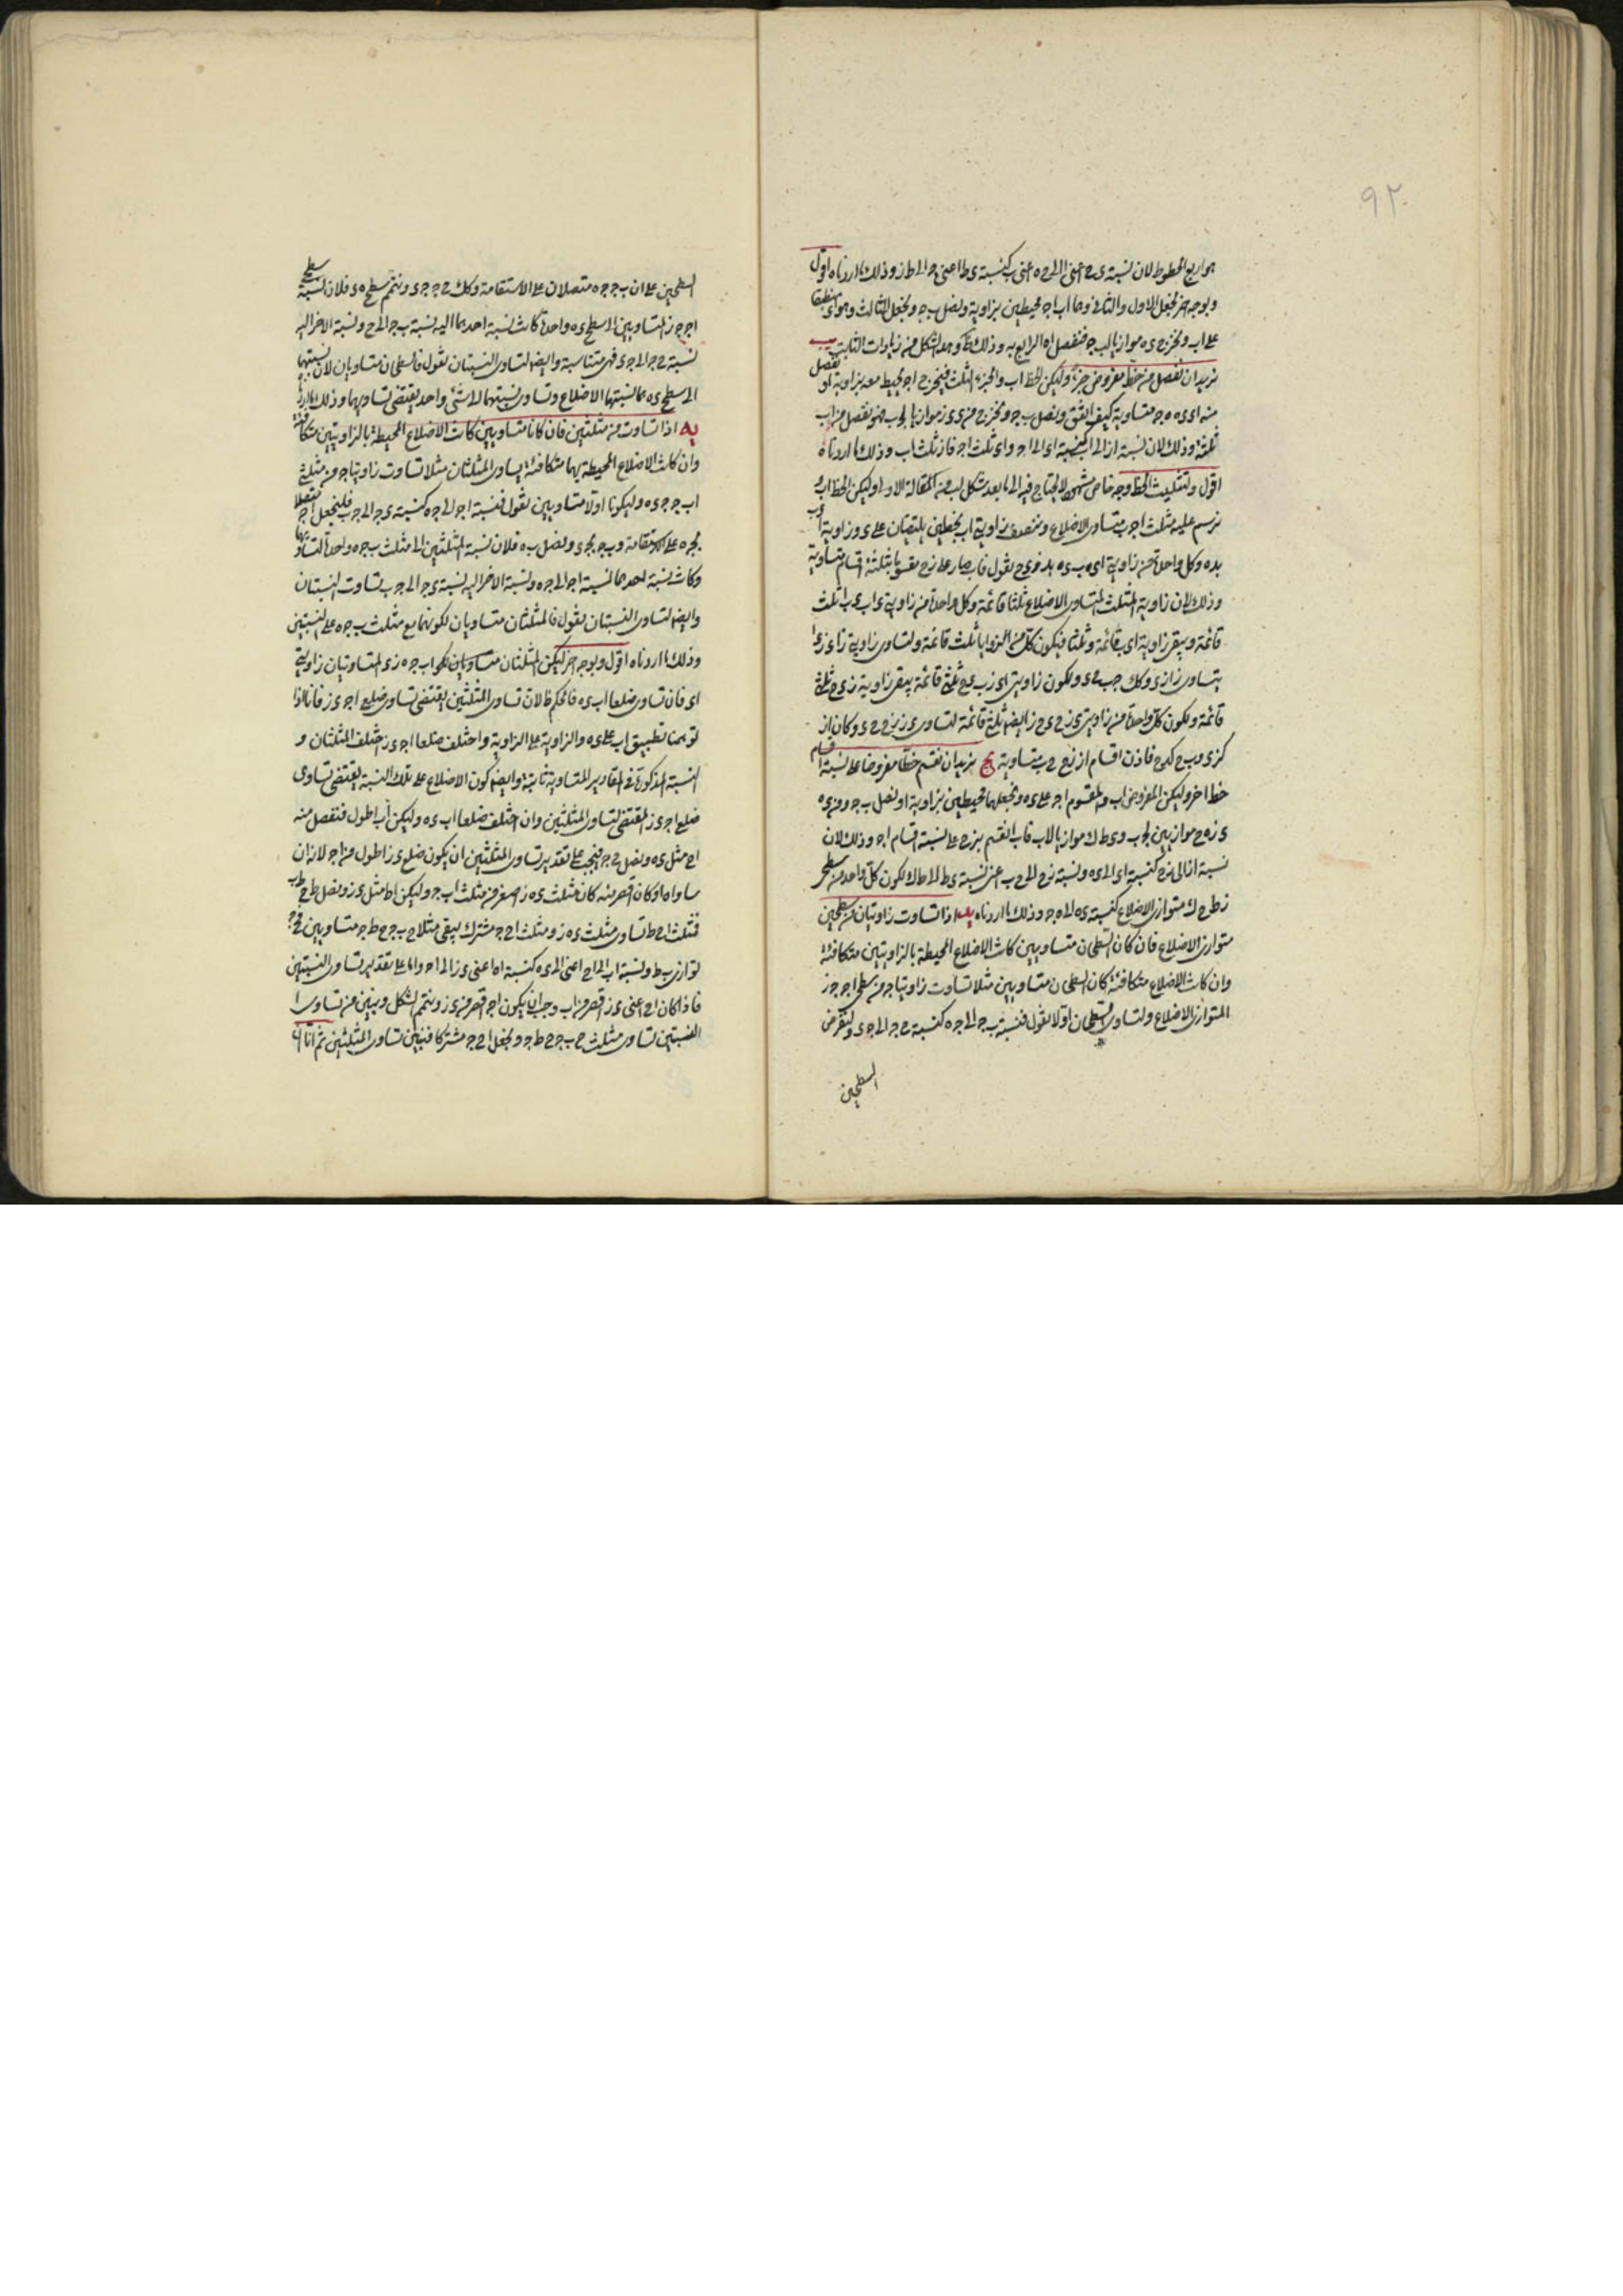 ٩٢
هو رابع الخطوط لان نسبة د ح اعنى ا الى ح ه اعنى ب كنسبة د ط اعنى ج الى ط ز وذلك ما اردناه اقول
وبوجه اخر نجعل الاول والثانى وهما ا ب ا ج محيطين بزاوية ونصل ب ج ونجعل الثالث وهو ا د منطبقا
على ا ب ونخرج د ه موازيا لب ج فنفصل ا ه الرابع به وذلك وهذا الشكل من زيادات الثابت يب
نريد ان نفصل من خط مفروض جزءا وليكن الخط ا ب والجزء الثلث فنخرج ا ج محيطا معه بزاوية ا ونفصل
منه ا د د ه ه ج متساوية كيف اتفق ونصل ب ج ونخرج من د د ز موازيا لج ب فهو نفصل من ا ب
ثلثه وذلك لان نسبة ا ز الى ا ب كنسبة ا د الى ا ج و ا د ثلث ا ج فا ز ثلث ا ب وذلك ما اردناه
اقول ولتثليث الخط وجه خاص سهل لا يحتاج فيه الى ما بعد شكل لب من المقالة الاولى وليكن الخط ا ب و
نرسم عليه مثلث ا ج ب متساوى الاضلاع وننصف زاويتى ا ب بخطين يلتقيان على د وزاويتى ا د ب
وكل واحدة من زاويتى
وذلك لان زاوية المثلث المتساوى الاضلاع ثلثا قائمة وكل واحدة من زاويتى د ا ب د ب ا ثلث
قائمة ويبقى زاوية ا د ب قائمة وثلثا فيكون كل من الزوايا ثلث قائمة ولتساوى زاويتى ز ا د ز د ا
يتساوى ز ا ز د وكك ح ب ح د ويكون زاويتى ا د ز ب د ح ثلثى قائمة يبقى زاوية ز د ح ثلثى
قائمة ويكون كل واحدة من زاويتى د ز ح د ح ز ايضا ثلثى قائمة لتساوى د ز ز ح ح د وكان ا ز
كز د و ب ح كح د فاذن اقسام ا ز ز ح ح ب متساوية يج نريد ان نقسم خطا مفروضا على نسبة اقسام
خط اخر وليكن المفروض ا ب والمقسوم ا ج على د ه ونجعلهما محيطين بزاوية ا ونصل ب ج ومن د ه
د ز ه ح موازيين لج ب و د ط ك موازيا لا ب فا ب انقسم بز ح على نسبة اقسام ا ج وذلك لان
نسبة ا ز الى ز ح كنسبة ا د الى د ه ونسبة ز ح الى ح ب اعنى نسبة د ط الى ط ك لكون كل واحد من سطحى
ز ط ح ك متوازى الاضلاع كنسبة د ه الى ه ج وذلك ما اردناه يد اذا تساوت زاويتان من سطحين
متوازى الاضلاع فان كان السطحان متساويين كانت الاضلاع المحيطة بالزاويتين متكافئة
وان كانت الاضلاع متكافئة كان السطحان متساويين مثلا تساوت زاويتا ج من سطحى ا ج ج ز
المتوازى الاضلاع ولتساوى السطحان اولا نقول فنسبة ب ج الى ج ه كنسبة ح ج الى ج د ولنفرض
السطحين
السطحين على ان ب ج ج ه متصلان على الاستقامة وكك ح ج ج د ونتمم سطح ه د فلان نسبة سطحى
ا ج ج ز المتساويين الى سطح د ه واحدة كانت نسبة احدهما اليه نسبة ب ج الى ج ه ونسبة الاخر اليه
نسبة ح ج الى ج د فهى متناسبة وايضا لتساوى النسبتان نقول فالسطحان متساويان لان نسبتهما
الى سطح د ه هما نسبتهما الاضلاع وتساوى نسبتهما الى شئ واحد يقتضى تساويهما وذلك ما اردناه
يه اذا تساوت من مثلثين فان كانا متساويين كانت الاضلاع المحيطة بالزاويتين متكافئة
وان كانت الاضلاع المحيطة بهما متكافئة يساوى المثلثان مثلا تساوت زاويتا ج من مثلثى
ا ب ج ج د ه وليكونا اولا متساويين نقول فنسبة ا ج الى ج ه كنسبة د ج الى ج ب فلنجعل ا ج متصلا
بج ه على الاستقامة و ب ج بج د ونصل ب ه فلان نسبة المثلثين الى مثلث ب ج ه واحدة لتساويهما
وكانت نسبة احدهما نسبة ا ج الى ج ه ونسبة الاخر اليه نسبة د ج الى ج ب تساوت النسبتان
وايضا لتساوى النسبتان نقول فالمثلثان متساويان لكونهما مع مثلث ب ج ه على النسبتين
وذلك ما اردناه اقول وبوجه اخر ليكن المثلثان متساويان هما ا ب ج ه ز د المتساويتان زاويتى
ا د فان تساوى ضلعا ا ب د ه فالحكم ظ لان تساوى المثلثين يقتضى تساوى ضلعى ا ج د ز فانا اذا
توهمنا تطبيق ا ب على د ه والزاوية على الزاوية واختلف ضلعا ا ج د ز اختلف المثلثان و
النسبة المذكورة فى المقادير المتساوية ثابتة وايضا كون الاضلاع على تلك النسبة يقتضى تساوى
ضلعى ا ج د ز المقتضى لتساوى المثلثين وان اختلف ضلعا ا ب د ه وليكن ا ب اطول فنفصل منه
ا ح مثل د ه ونصل ح ج فيجب على تقدير تساوى المثلثين ان يكون ضلع د ز اطول من ا ج لانه ان
ساواه او كان اقصر منه كان مثلث د ه ز اصغر من مثلث ا ب ج وليكن ا ط مثل د ز ونصل ط ح ط ب
فمثلث ا ح ط تساوى مثلث د ه ز ومثلث ا ح ج مشترك يبقى مثلثا ح ب ج ح ط ج متساويين فح ج
توازى ب ط ونسبة ا ب الى ا ح اعنى الى د ه كنسبة ا ط اعنى د ز الى ا ج واما على تقدير تساوى النسبتين
فاذا كان ا ح اعنى د ه اقصر من ا ب وجب ان يكون ا ج اقصر من د ز ونتمم الشكل ونبين من تساوى
النسبتين تساوى مثلث ح ب ج ح ط ج ونجعل ا ح ج مشتركا فنبين تساوى المثلثين ثم انا ان